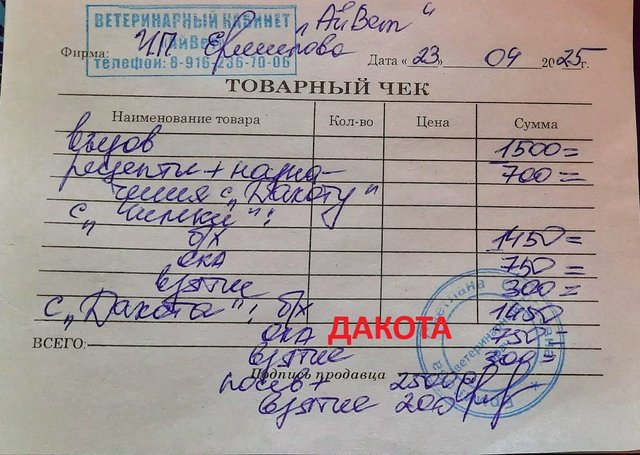 ВЕТЕРИНАРНЫЙ КАБИНЕТ
АйВет
телефон: 8-916-236-70-06
Фирма: И.П. „АйВет“
Дата «23» 04 2025г.
ТОВАРНЫЙ ЧЕК
Наименование товара Кол-во Цена Сумма
вызов 1500=
рецепты + назна- 700=
чения с „Дакоту“
с „ “:
б/х 1450=
ОКА 750=
взятие 300=
с „Дакота“: б/х 1450
ОКА ДАКОТА 750
ВСЕГО: взятие 300
Подпись продавца
посев + 2500
взятие 200